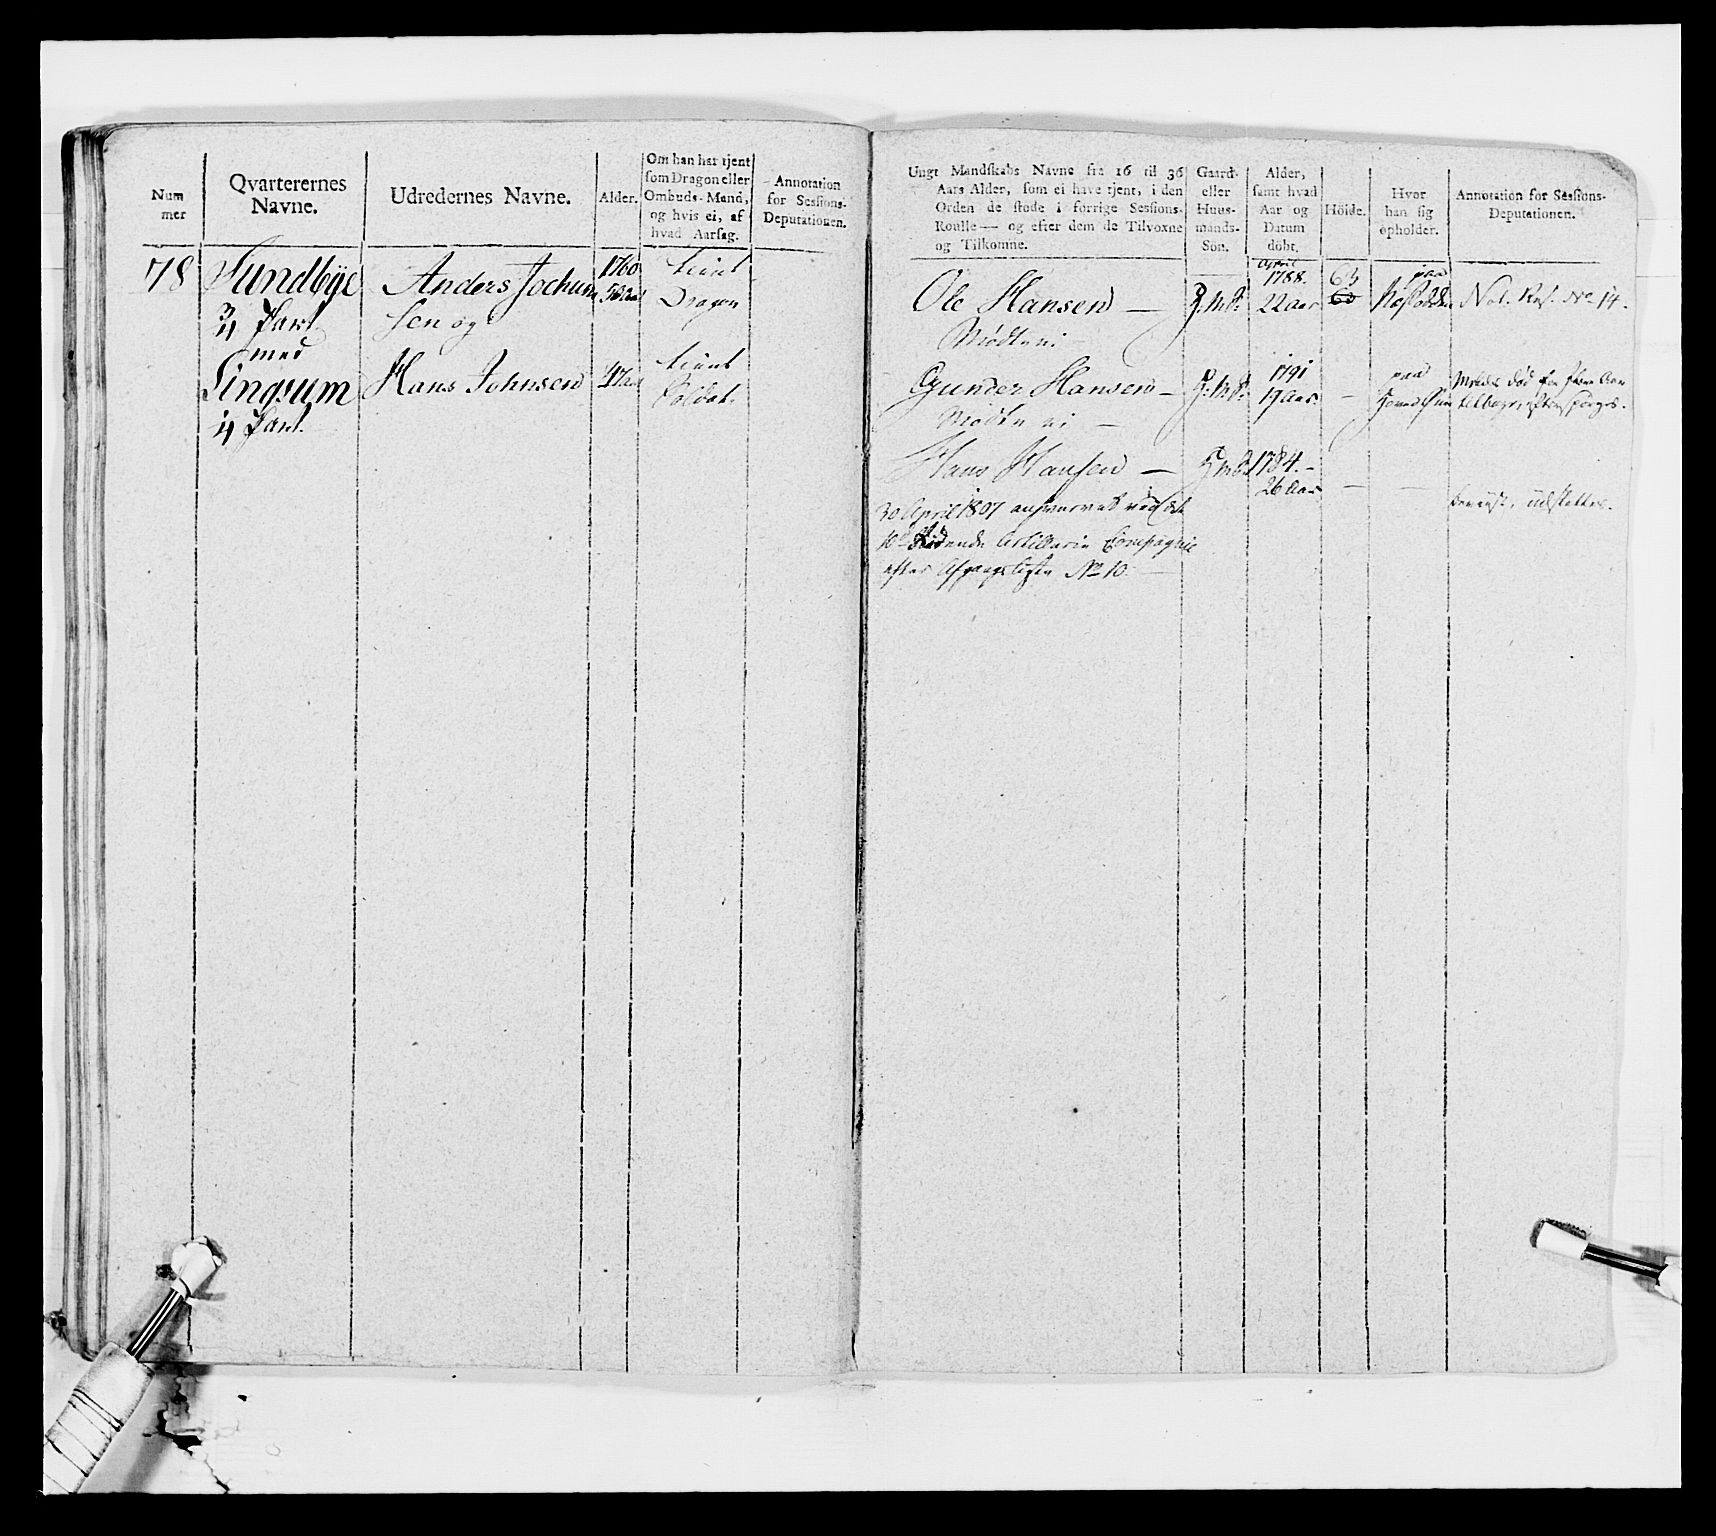 Num
mer
Qvarterernes
Navne.
Udredernes Navne.
Alder.
Om han har tjent
som Dragon eller
Ombuds-Mand,
og hvis ei, af
hvad Aarsag.
Annotation
for Sessions-
Deputationen.
78
Sundbye
3/4 Part
med
Lingsum
1/4 Part.
Anders Jochum
sen og
Hans Johnsen
1760
tient
Dragon
tient
Soldat.
Ungt Mandskabs Navne fra 16 til 36
Aars Alder, som ei have tjent, i den
Orden de stode i forrige Sessions-
Roulle — og efter dem de Tilvoxne
og Tilkomne.
Gaard-
eller
Huus-
mands-
Sön.
Alder,
samt hvad
Aar og
Datum
döbt.
Höide.
Hvor
han sig
opholder.
Annotation for Sessions-
Deputationen.
Ole Hansen —
Mødte ei
April
1788.
22 Aar
63
paa
Not. Res. No 14.
Gunder Hansen —
Mødte ei —
1791
19 Aar.
—
paa
død
Hans Hansen —
1784. —
26 Aar
—
—
udslettes.
30 April 1807 ved det
10de Ridende Artillerie Compagnie
efter Afgangsliste No 10. —